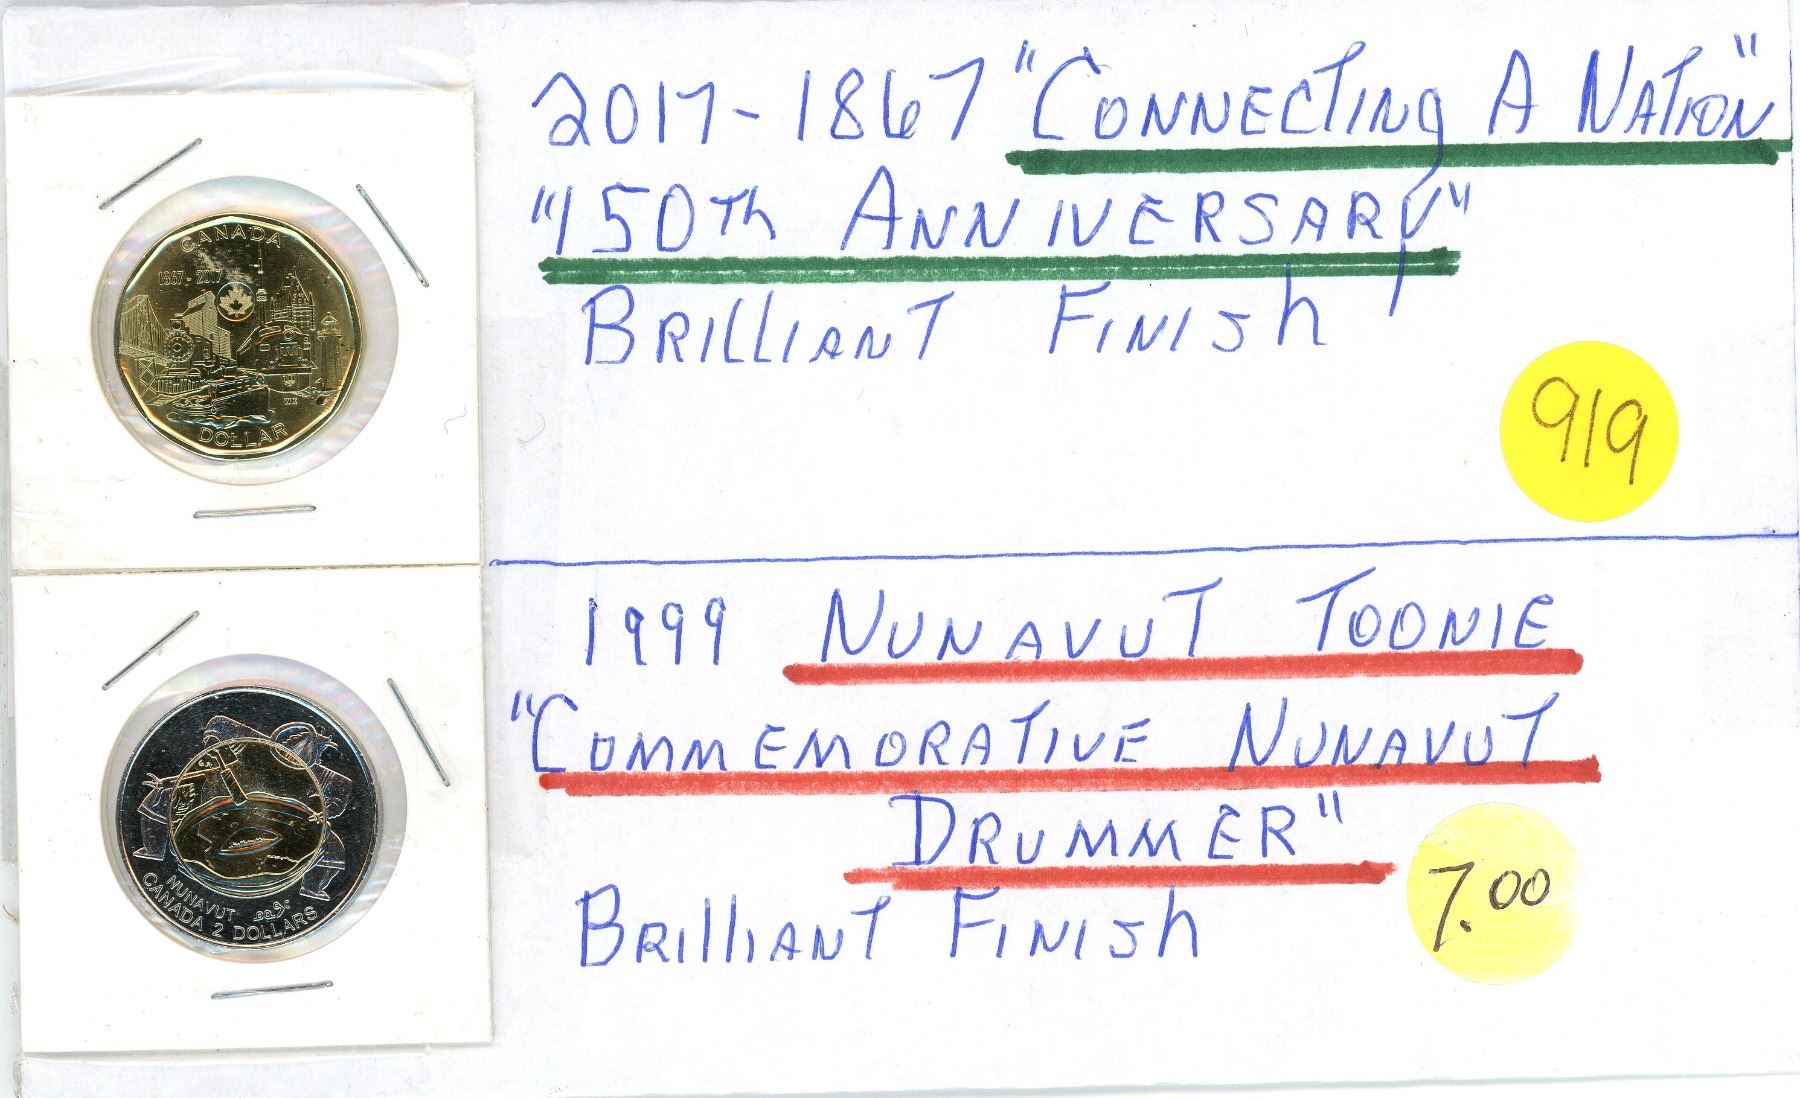 2017-1867 "CONNECTING A NATION"
"150Th ANNIVERSARY"
BRILLIANT FINISh
919
1999 NUNAVUT TOONIE
"COMMEMORATIVE NUNAVUT
DRUMMER"
BRILLIANT FINISh
7.00
CANADA
1867-2017
DOLLAR
NUNAVUT ᓄᓇᕗᑦ
CANADA 2 DOLLARS